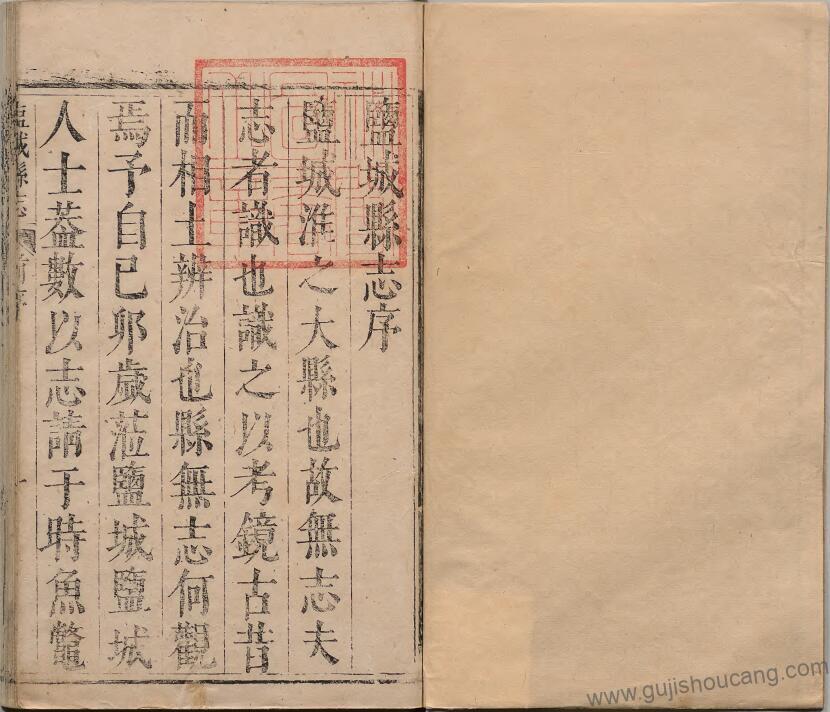 鹽城縣志序
鹽城淮之大縣也故無志夫
志者識也識之以考鏡古昔
而相土辨治也縣無志何觀
焉予自己卯歲蒞鹽城鹽城
人士葢數以志請于時魚鼈
鹽城縣志
序
www.gujishoucang.com